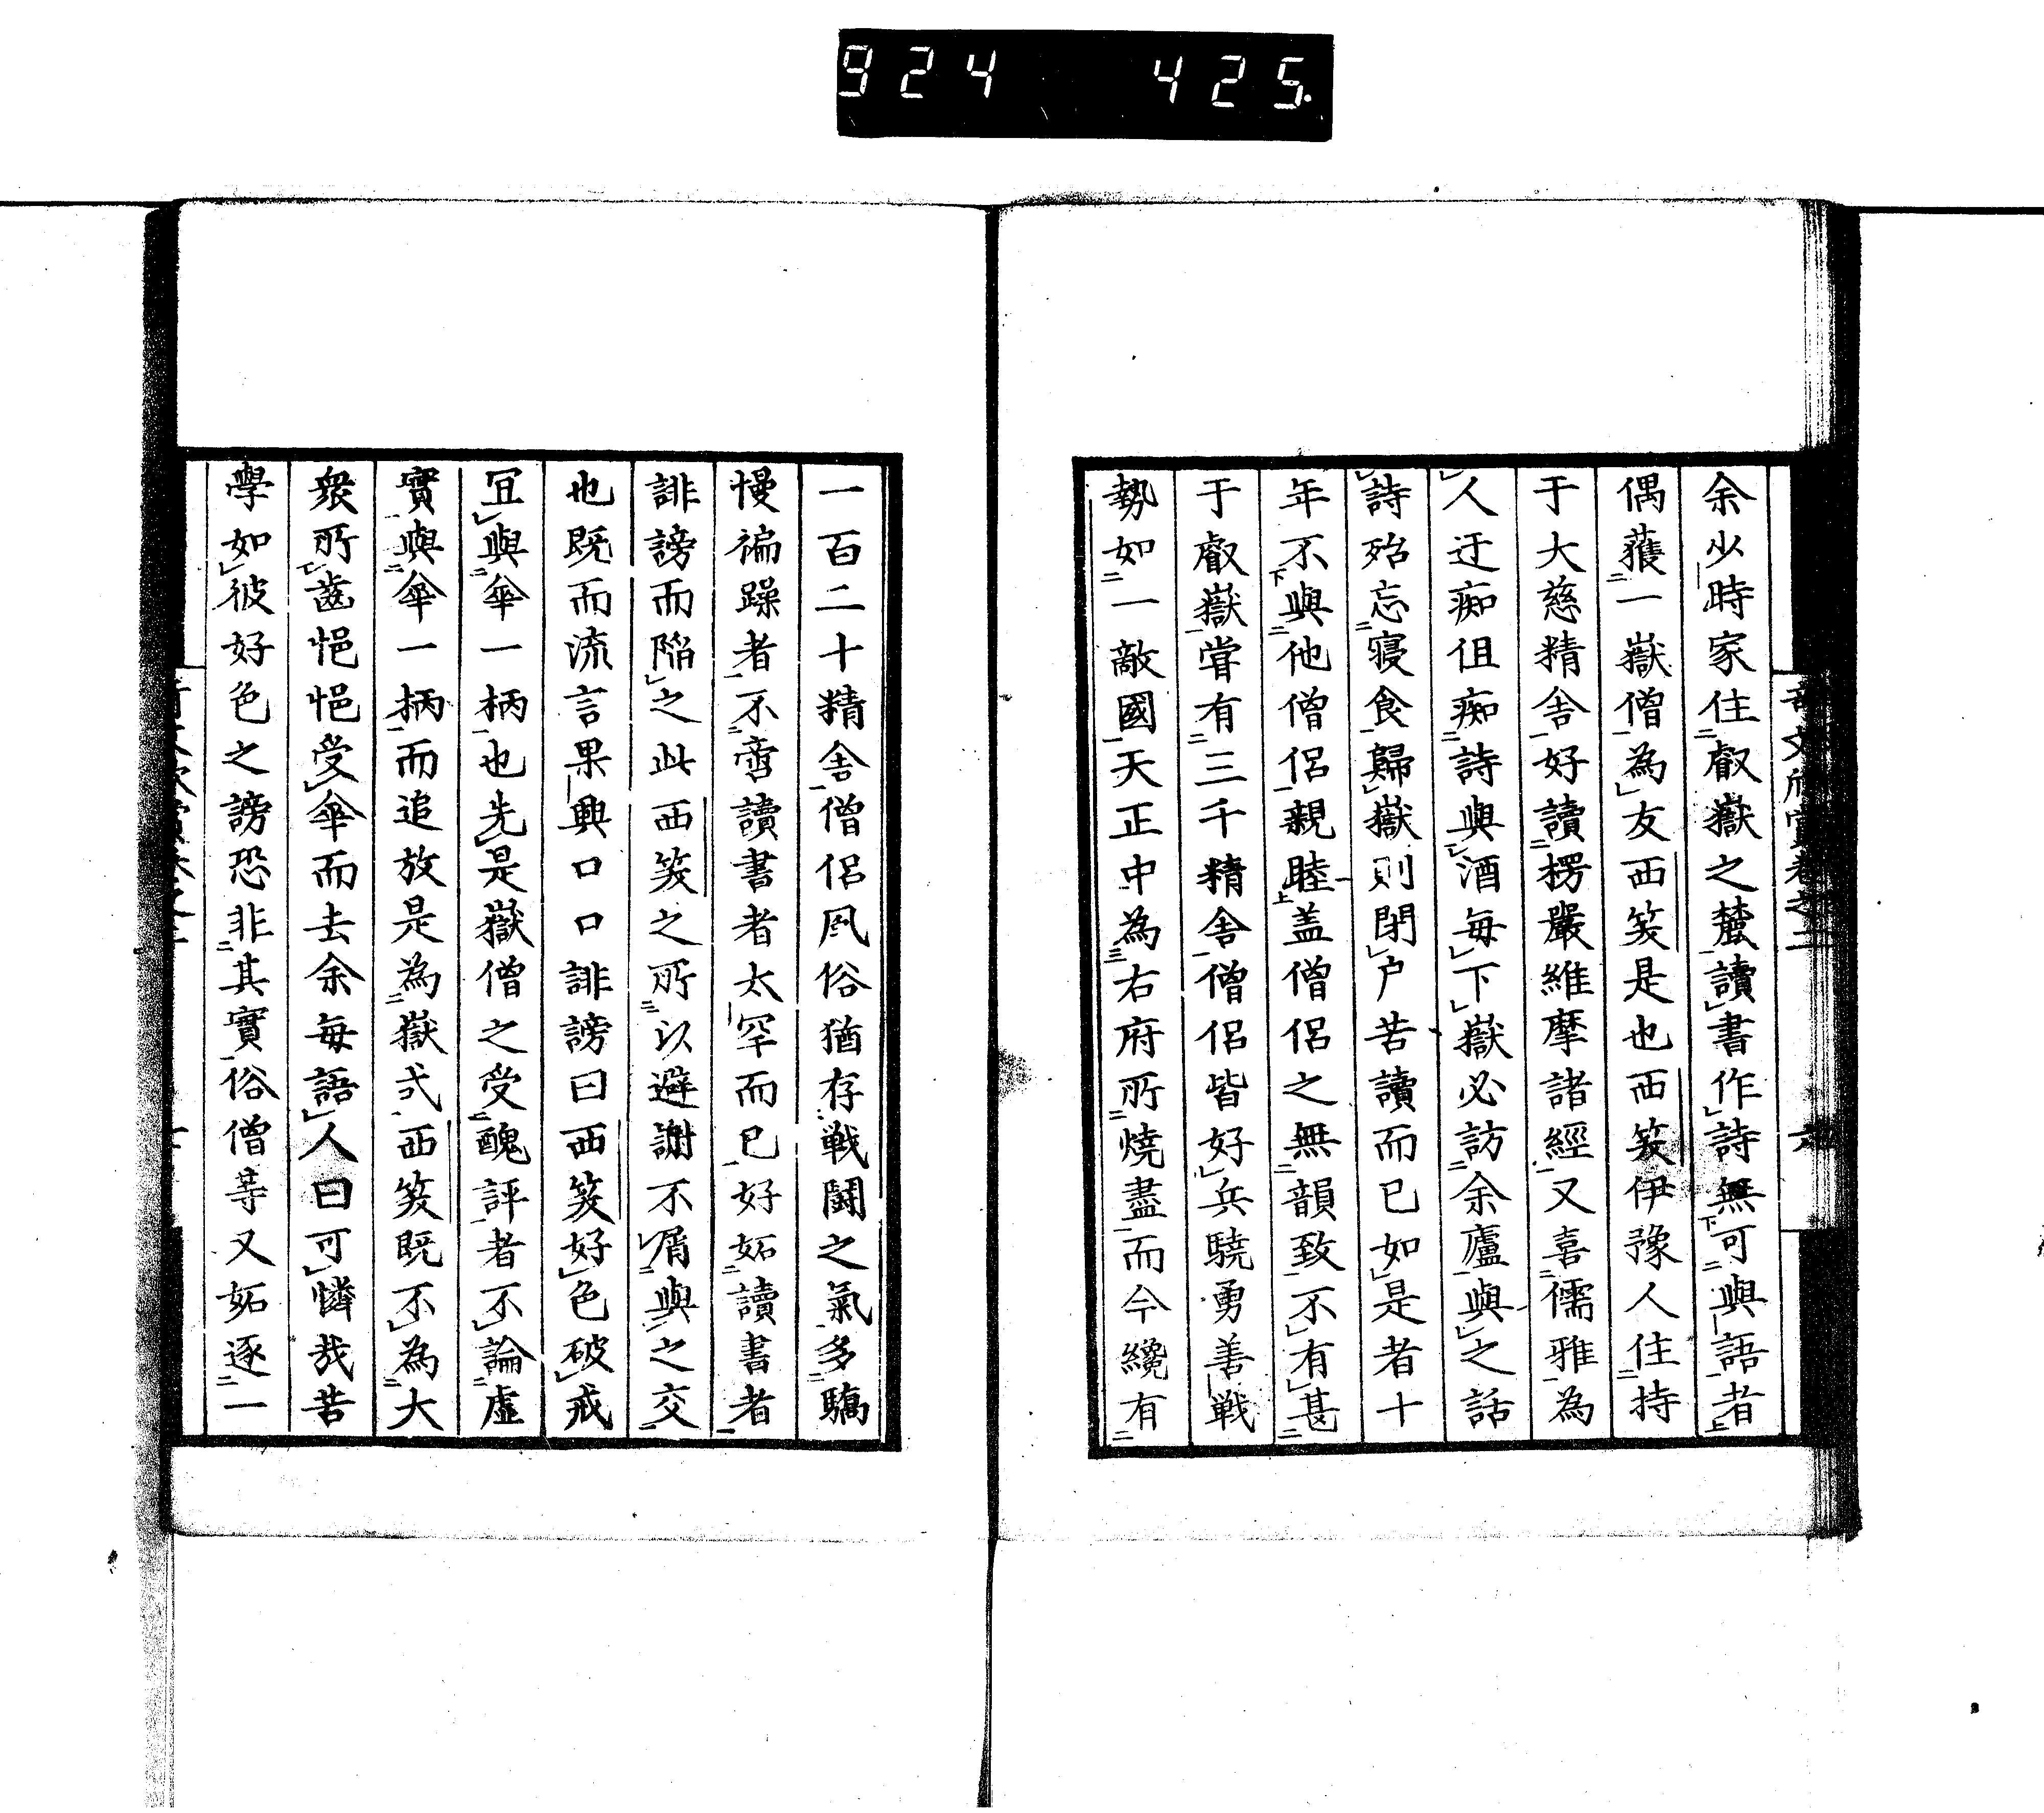 924 425
余少時家住叡嶽之麓讀書作詩無可與語者
偶蕥一嶽僧為友西笑是也西笑伊豫人住持
于大慈精舎好讀楞嚴維摩諸經又喜儒雅為
人迂痴但痴詩與酒毎下嶽必訪余廬與之話
詩殆忘寝食歸嶽則閉户苦讀而已如是者十
年不與他僧侶親睦盖僧侶之無韻致不有甚
于叡嶽甞有三千精舎僧侶皆好兵驍勇善戦
勢如一敵國天正中為右府所燒盡而今纔有
一百二十精舎僧侶風俗猶存戦鬪之氣多驕
慢褊躁者不啻讀書者太罕而已好妬讀書者
誹謗而陷之此西笑之所以避謝不屑與之交
也既而流言果興口口誹謗曰西笑好色破戒
冝與傘一柄也先是嶽僧之受醜評者不論虚
實與傘一柄而追放是為嶽式西笑既不為大
衆所齒悒悒受傘而去余毎語人曰可憐哉苦
學如彼好色之謗恐非其實俗僧等又妬逐一